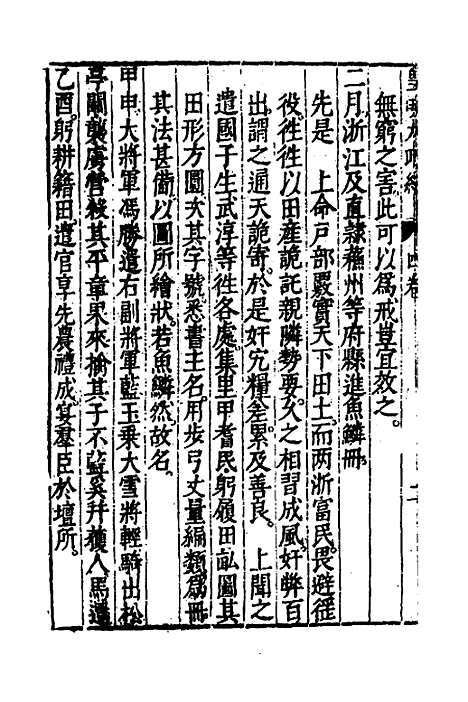 無窮之害此可以為戒豈宜效之。
二月浙江及直隸蘇州等府縣進魚鱗冊
先是　上命戶部覈實天下田土。而兩浙富民。畏避徭
役。徃徃以田産詭託親隣勢要。久之相習成風。奸弊百
出。謂之通天詭寄。於是奸宄糧差。累及善良。　上聞之
遣國子生武淳等徃各處。集里甲耆民。躬履田畝。圖其
田形方圓。次其字號。悉書主名。用步弓丈量。編類為冊
其法甚備。以圖所繪狀。若魚鱗然。故名。
甲申。大將軍馮勝遣右副將軍藍玉乗大雪將輕騎出松
亭關襲虜營殺其平章果來擒其子不蘭奚幷獲人馬還
乙酉。躬耕籍田。遣官享先農。禮成。宴羣臣於壇所。